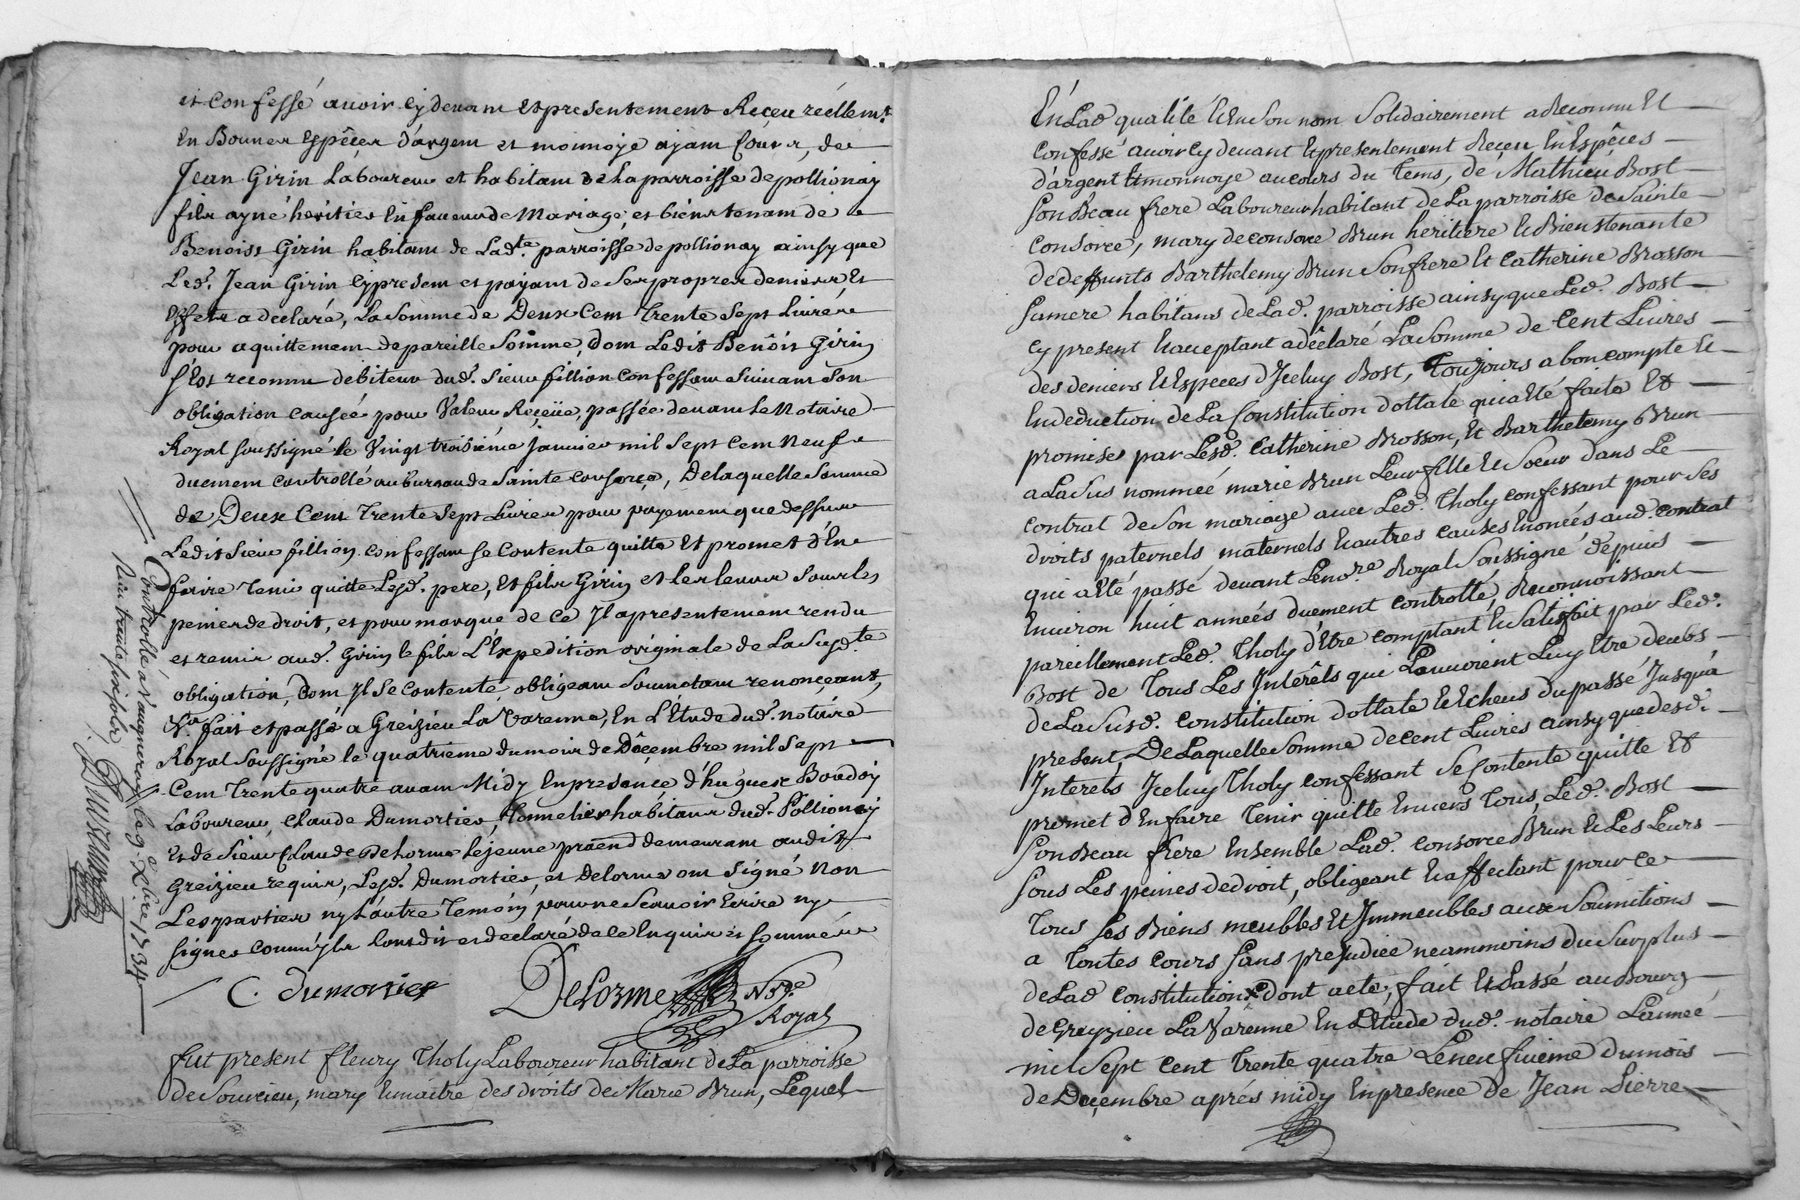 et Confessé avoir cy devant et presentement Receu réellem.t
En Bonnes Espêces d'argent et monnoye ayant Cours, de
Jean Girin Laboureur et habitant de La parroisse de pollionay
fils ayné heritier En faveur de Mariage, et biens tenant de
Benoist Girin habitant de Lad.te parroisse de pollionay ainsy que
Led. Jean Girin cy present et payant de Ses propres deniers, Et
Effets a déclaré, La Somme de Deux Cent Trente Sept Livres
pour aquittement de pareille Somme, Dont Ledit Benôit Girin
S'est reconnu debiteur dud. Sieur fillion Confessant Suivant Son
obligation causée pour Valeur Reçeüe, passée devant Le Notaire
Royal Soussigné le Vingt troisiéme janvier mil Sept Cent Neuf
duement controllé au bureau de Sainte Consorce, De laquelle Somme
de Deux Cent Trente Sept Livres pour payement que dessus
Ledit Sieur fillion confessant Se Contente quitte Et promet d'En
faire Tenir quitte Lesd. pere, Et fils Girin et Les leurs Sous les
peines de droit, et pour marque de Ce Il a presentement rendu
et remis aud. Girin le fils L'Expedition originale de La Susd.te
obligation, Dont Il Se Contente, obligeant Soumettant renonçeant,
fait et passé a Greizieu La Varenne, En L'Etude dud. notaire
Royal Soussigné le quatrieme du mois de Décembre mil Sept
Cent Trente quatre avant Midy En presence d'hugues Boudoy
Laboureur, Claude Dumortier, Tonnelier habitans dud. Pollionay
Et de Sieur Claude Delorme Lejeune demeurant audit
Greizieu requis, Lesd. Dumortier, et Delorme ont Signé Non
Les parties ny L'autre Temoin pour ne Scavoir Ecrire ny
Signer comm'Ils L'ont dit et declaré de ce Enquis et Sommés
C. dumortier
DeLorme No.re
Royal
Controllé a Vaugneray le 9.e Xbre 1734
fut present fleury Tholy Laboureur habitant de La parroisse
de Sourcieu, mary Emaître des droits de Marie Brun, Lequel
En Lad. qualité Et En Son nom Solidairement a Reconnu Et
confessé avoir cy devant Et presentement Receu En Espêces
d'argent Et monnoye au cours du Tems, de Mathieu Bost
Son Beau frere Laboureur habitant de La parroisse de Sainte
Consorce, mary de consorce Brun heritiere Et Bienstenante
de deffunts Barthelemy Brun Son frere Et Catherine Brosson
Sa mere habitans de Lad. parroisse ainsy que Led. Bost
cy present Et acceptant a dêclaré La Somme de Cent Livres
des deniers Et Especes d'Iceluy Bost, Toujours a bon compte Et
En deduction de La Constitution dottale qui a Eté faite Et
promise par Lesd. Catherine Brosson, Et Barthelemy Brun
a La Sus nommeé marie Brun Leur fille Et Soeur dans Le
contrat de Son mariage avec Led. Tholy confessant pour Ses
droits paternels maternels Et autres causes Enoncées aud. contrat
qui a Eté passé devant Le no.re Royal Soussigné depuis
Environ huit années duement controllé, Reconnoissant
pareillement Led. Tholy d'Etre comptant Et Satisfait par Led.
Bost de Tous Les Intérêts qui Pouvoient Luy Etre deubs
de La Susd. constitution dottale Et Echeus du passé Jusqu'a
present, De Laquelle Somme de cent Livres ainsy que desd.
Interets Iceluy Tholy confessant Se Contente quitte Et
promet d'En faire Tenir quitte Envers Tous, Led. Bost
Son Beau frere Ensemble Lad. Consorce Brun Et Les Leurs
Sous Les peines de droit, obligeant Et affectant pour ce
Tous Ses Biens meubles Et Immeubles aux Soumitions
a Toutes Cours Sans prejudice neammoins du Surplus
de Lad. constitution Dont acte, fait Et Passé au Bourg
de Greyzieu La Varenne En L'Etude dud. notaire L'année
mil Sept Cent Trente quatre Le neufvieme du mois
de Decembre aprés midy En presence de Jean Pierre